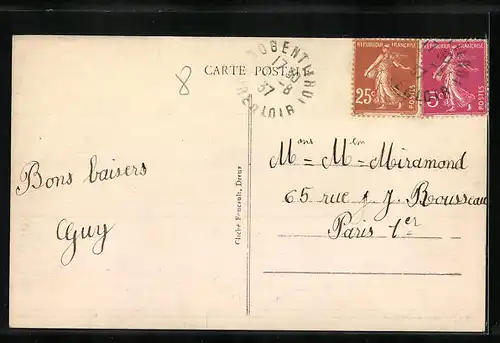 8
CARTE POSTALE
NOGENT-LE-ROI
17 30
8
37
EURE-ET-LOIR
REPUBLIQUE FRANÇAISE
25c
POSTES
REPUBLIQUE FRANÇAISE
5c
POSTES
Bons baisers
Guy
Cliché Foucault, Dreux
Mme = Mlle = Miramond
65 rue J. J. Rousseau
Paris 1er